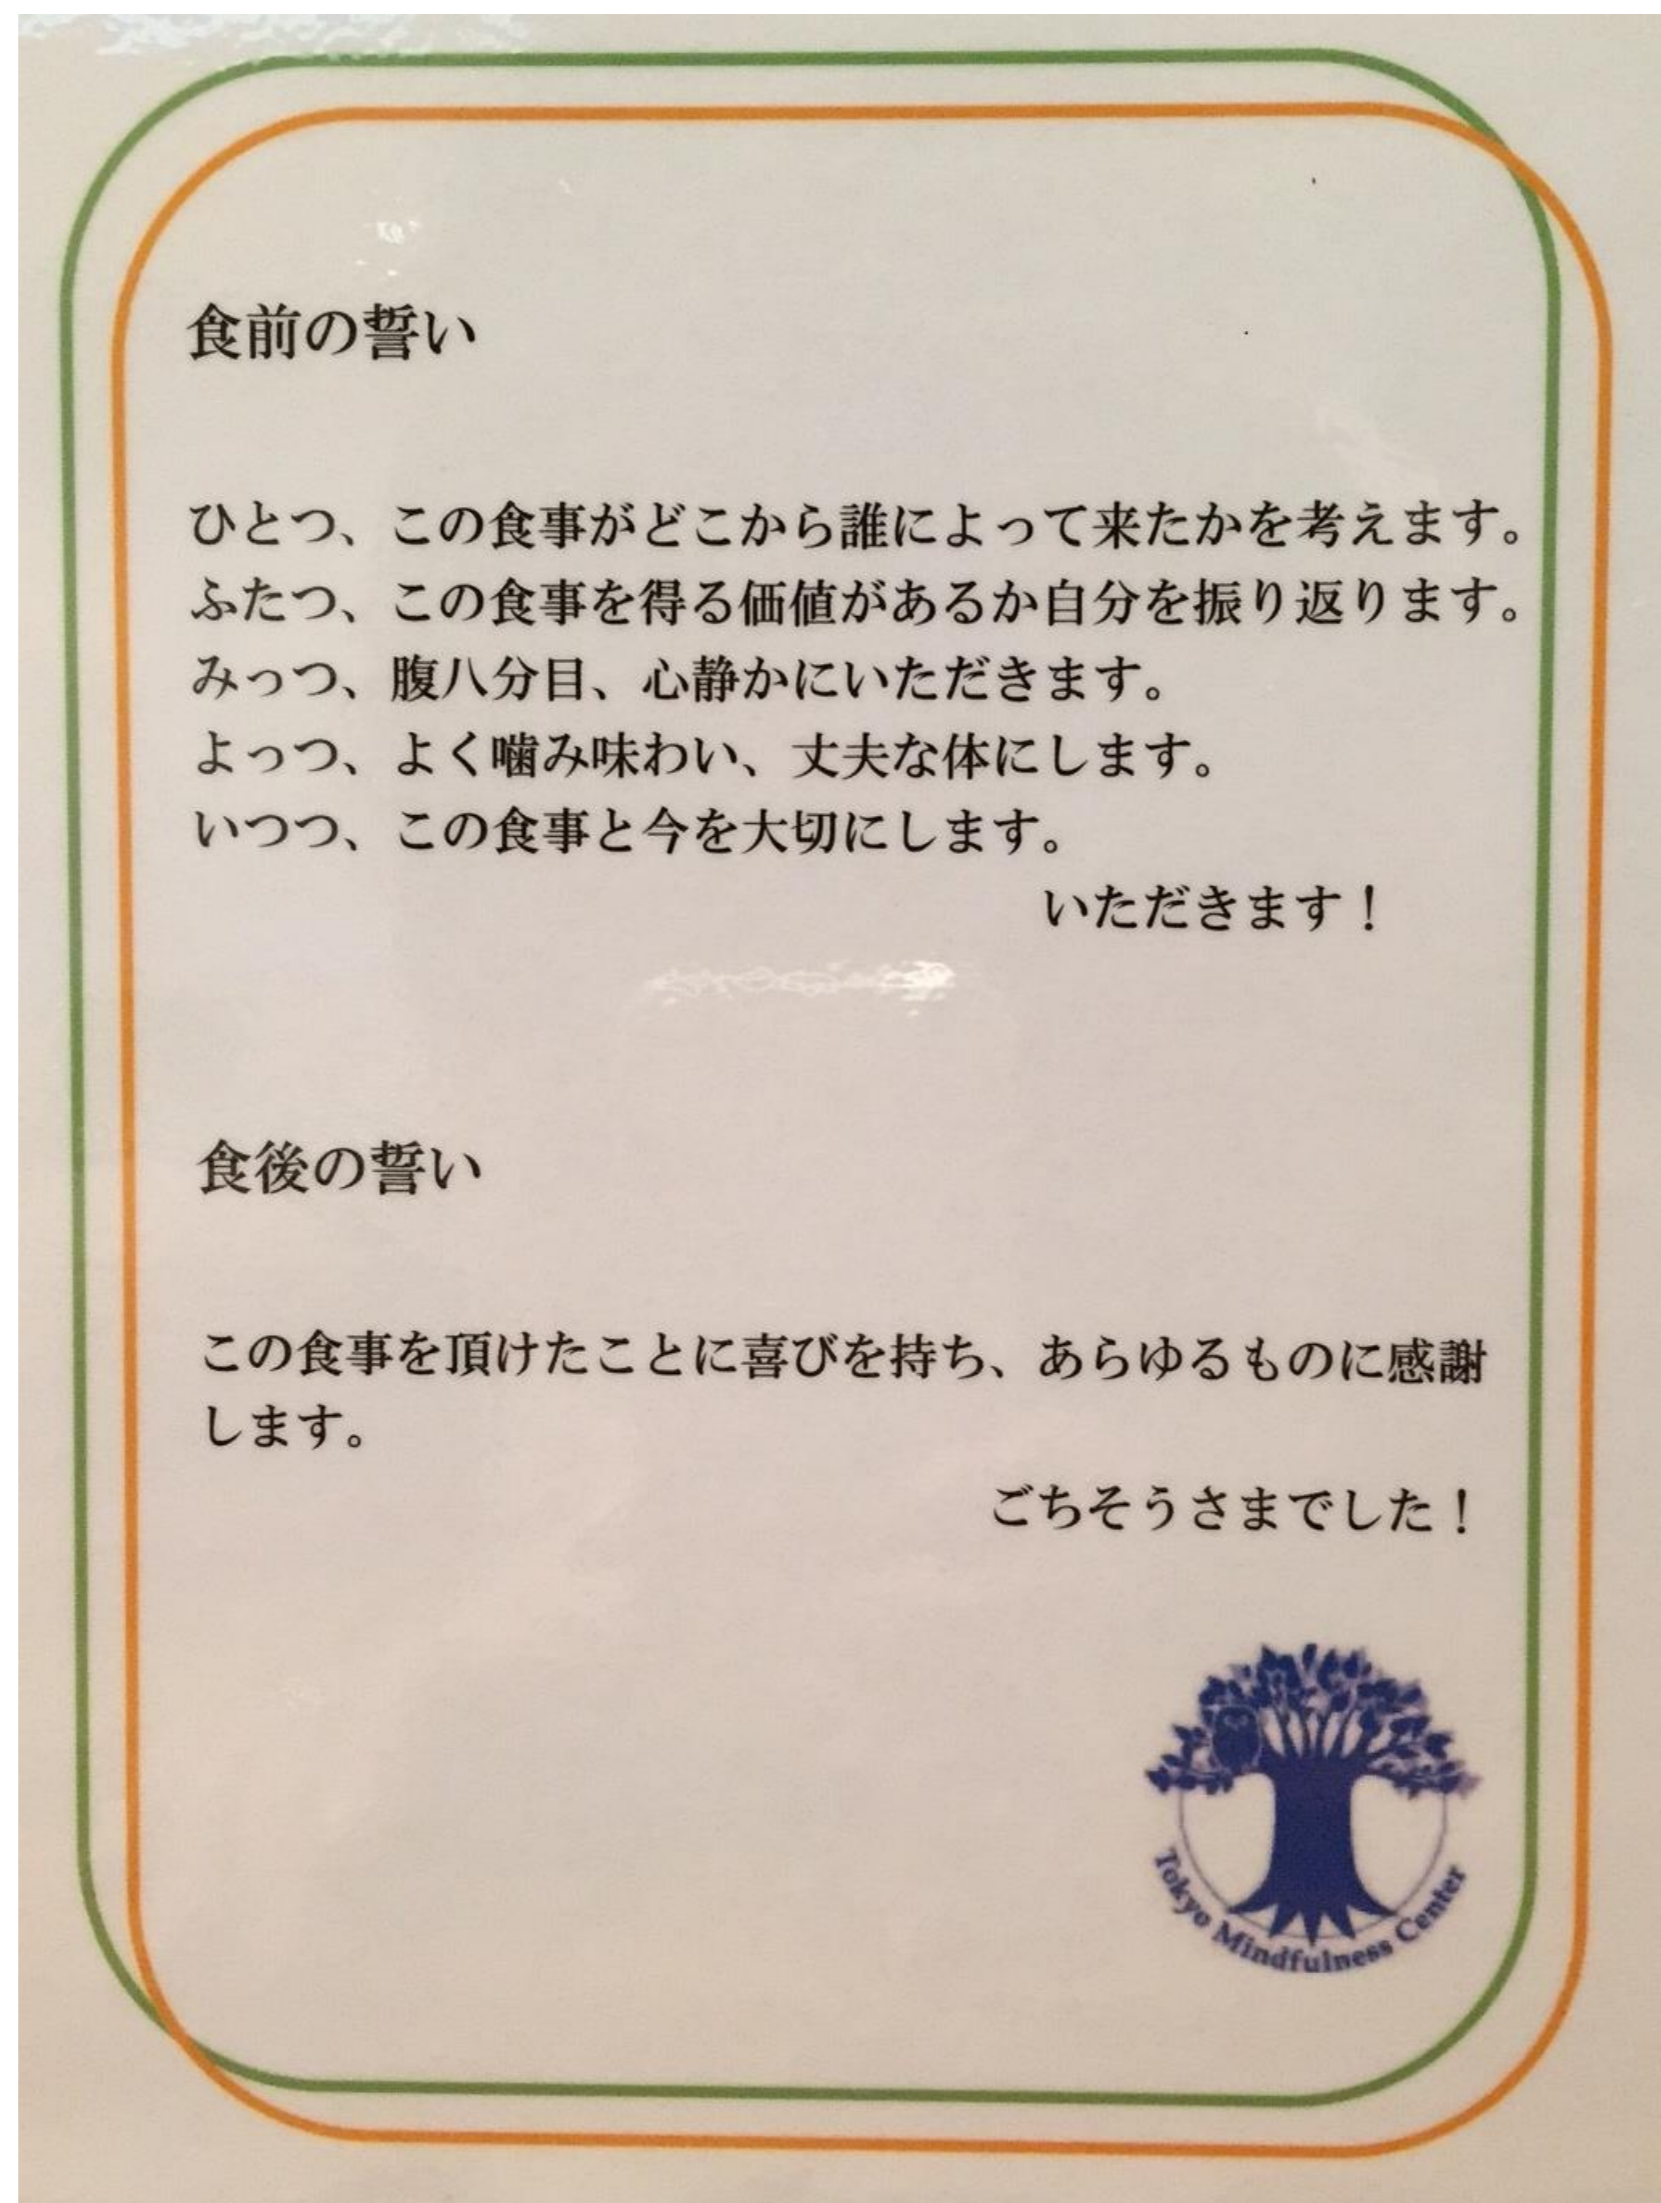 食前の誓い
ひとつ、この食事がどこから誰によって来たかを考えます。
ふたつ、この食事を得る価値があるか自分を振り返ります。
みっつ、腹八分目、心静かにいただきます。
よっつ、よく噛み味わい、丈夫な体にします。
いつつ、この食事と今を大切にします。
いただきます！
食後の誓い
この食事を頂けたことに喜びを持ち、あらゆるものに感謝
します。
ごちそうさまでした！
Tokyo Mindfulness Center